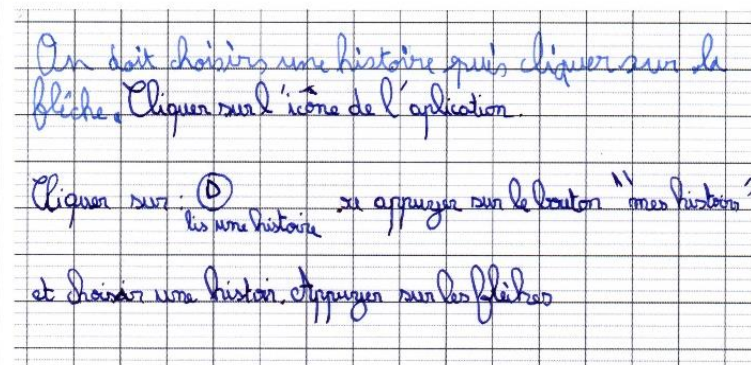 On doit choisirs une histoire puis cliquer sur la
flèche. Cliquer sur l'icône de l'aplication.
Cliquer sur : D appuyer sur le bouton "mes histoirs"
lis une histoire
et choisir une histoir. Appuyer sur les flèches